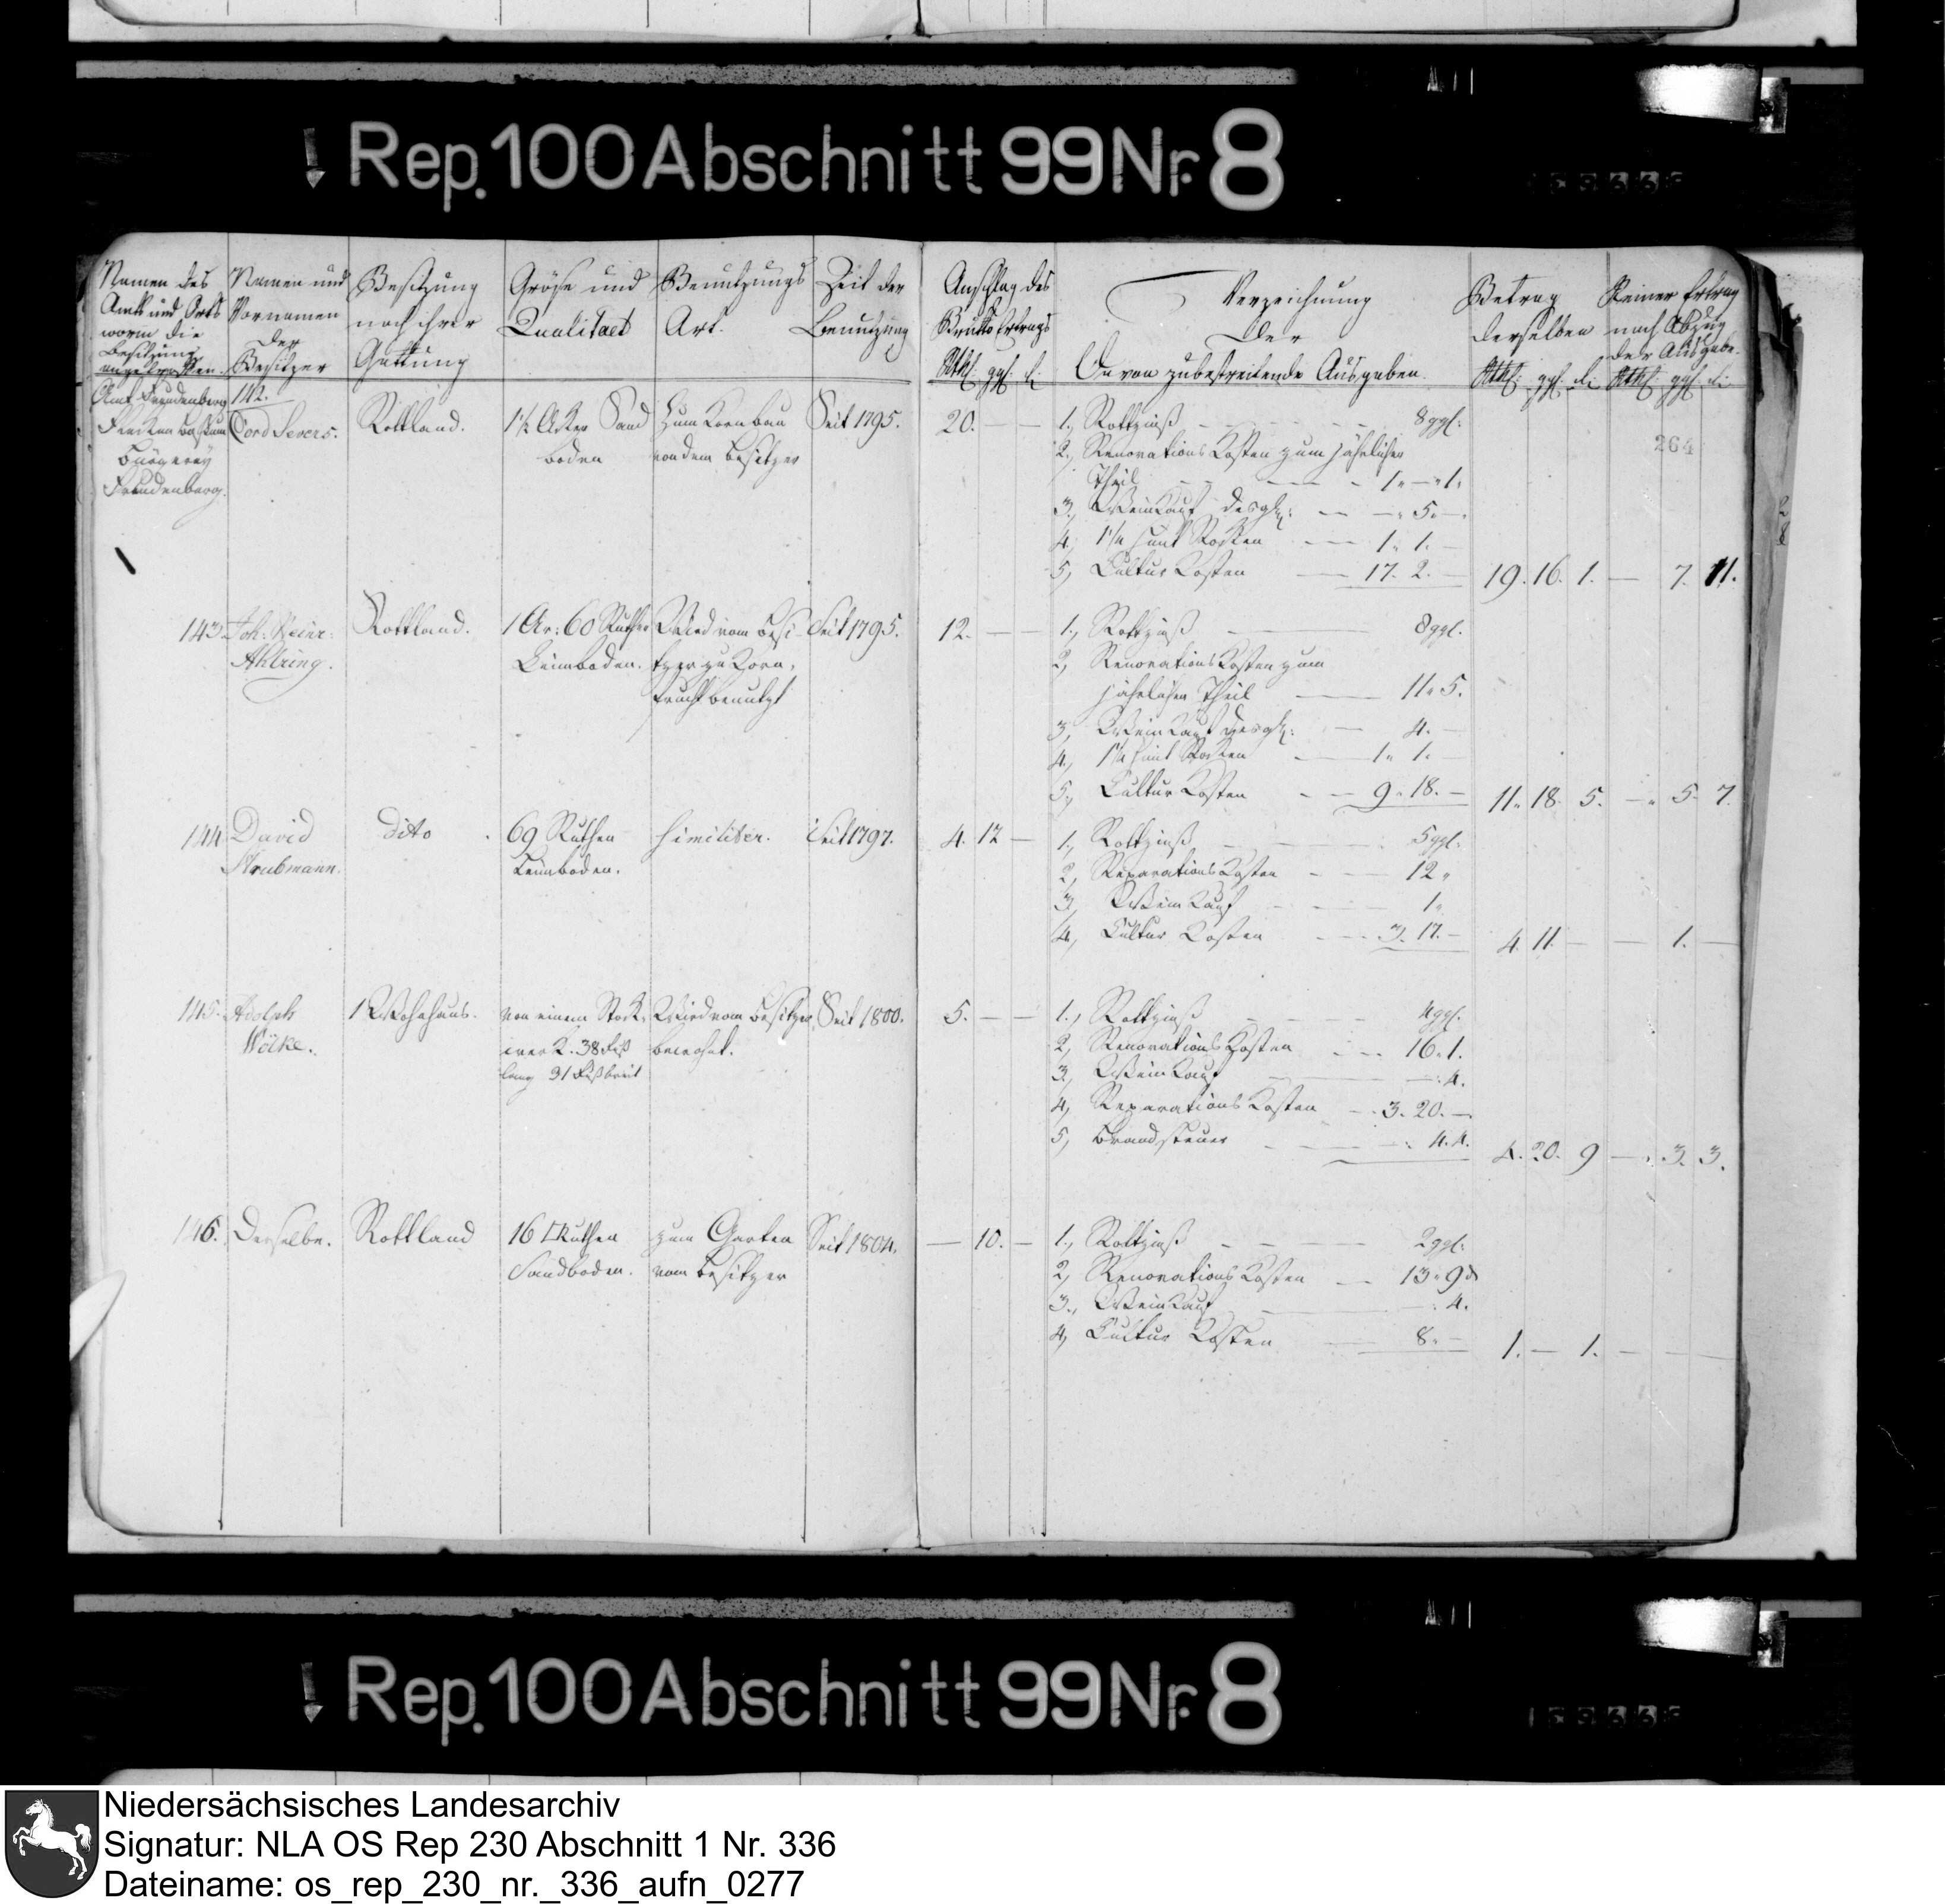 Rep. 100 Abschnitt 99 Nr. 8
Namen des
Amts und Orts
worin die
Besitzung
angetroffen.
Namen und
Vornamen
der
Besitzer
Besitzung
nach ihrer
Gattung
Gröse und
Qualitaet
Benutzungs
Art.
Zeit der
Benutzung
Anschlag des
Brutto Ertrags
Rthl. ggl. d.
Verzeichnung
der
davon zubestreitende Ausgaben.
Betrag
derselben
Rthl. ggl. d.
Reiner Ertrag
nach Abzug
der Ausgabe.
Rthl. ggl. d.
264
Amt Freudenberg
Flecken Baßum
Bürgerey
Freudenberg.
142.
Cord Severs.
Rottland.
1½ Acker Sand
boden
Zum Kornbau
von dem Besitzer
Seit 1795.
20. — —
1., Rottzinß — 8 ggl.
2., Renovations Kosten zum jährlichen
Theil — 1. — 1.
3., Weinkauf desgl: — 5. —
4, 1¼ himt Rocken — 1. 1. —
5, Cultur Kosten — 17. 2. —
19. 16. 1. — 7. 11.
143. Joh: Heinr:
Ahlring.
Rottland.
1 Ar: 60 Ruthen
Leimboden.
Wird vom Besi-
tzer zu Korn-
frucht benutzt
Seit 1795.
12. — —
1., Rottzinß — 8 ggl.
2, Renovations Kosten zum
jährlichen Theil — 11. 5.
3, Weinkauf desgl: — 4. —
4., 1¼ himt Rocken — 1. 1. —
5., Cultur Kosten — 9. 18. —
11. 18. 5. — 5. 7.
144. David
Strubmann.
dito
69 Ruthen
Leimboden.
similiter.
Seit 1797.
4. 12 —
1., Rottzinß — 5 ggl.
2, Reparations Kosten — 12.
3, Weinkauf — 1.
4, Cultur Kosten — 3. 17. —
4. 11. — — 1. —
145. Adolph
Wölke.
1 Wohnhaus.
von einem Stock-
werk. 38 Fuß
lang 31 Fuß breit
Wird vom Besitzer
bewohnt.
Seit 1800.
5. — —
1., Rottzinß — 4 ggl.
2, Renovations Kosten — 16. 1.
3, Weinkauf — 4.
4, Reparations Kosten — 3. 20. —
5, Brandsteuer — 4. 4.
4. 20. 9 — 3. 3.
146. Derselbe.
Rottland
16 □Ruthen
Sandboden.
zum Garten
vom Besitzer
Seit 1804.
— 10. —
1., Rottzinß — 2 ggl.
2, Renovations Kosten — 13. 9 d
3., Weinkauf — 4.
4, Cultur Kosten — 8. —
1. — 1. — — —
Rep. 100 Abschnitt 99 Nr. 8
Niedersächsisches Landesarchiv
Signatur: NLA OS Rep 230 Abschnitt 1 Nr. 336
Dateiname: os_rep_230_nr._336_aufn_0277